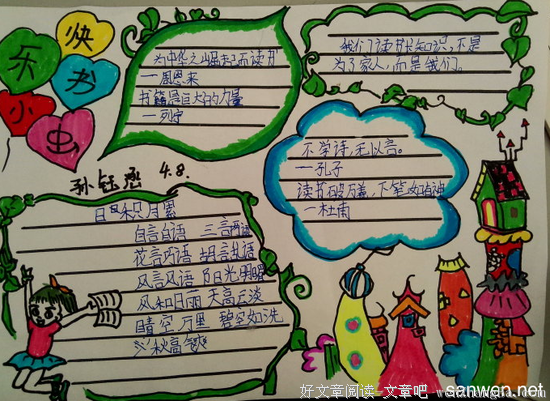 快
乐 书
小 虫
为中华之崛起而读书
—周恩来
书籍是巨大的力量
—列宁
我们读书长知识,不是
为了家人,而是我们。
不学诗,无以言。
—孔子
读书破万卷,下笔如有神
—杜甫
4.8.
日积月累
自言自语 三言两语
花言巧语 胡言乱语
风言风语 阳光明媚
风和日丽 天高云淡
晴空万里 碧空如洗
秋高气爽
好文章阅读-文章吧
sanwen.net